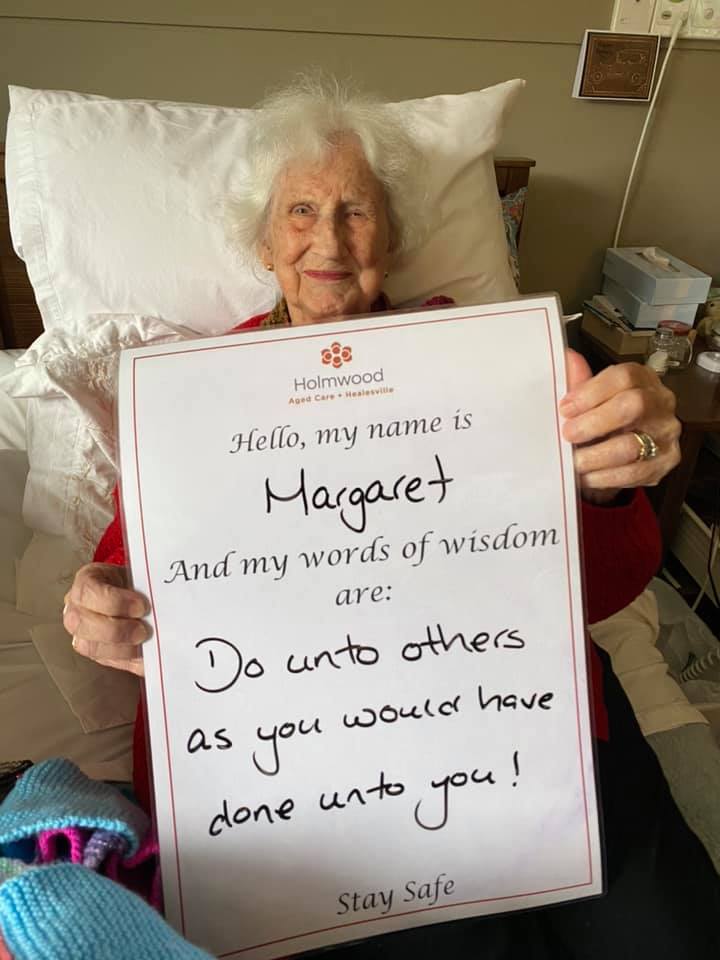 Holmwood
Aged Care • Healesville
Hello, my name is
Margaret
And my words of wisdom
are:
Do unto others
as you would have
done unto you!
Stay Safe